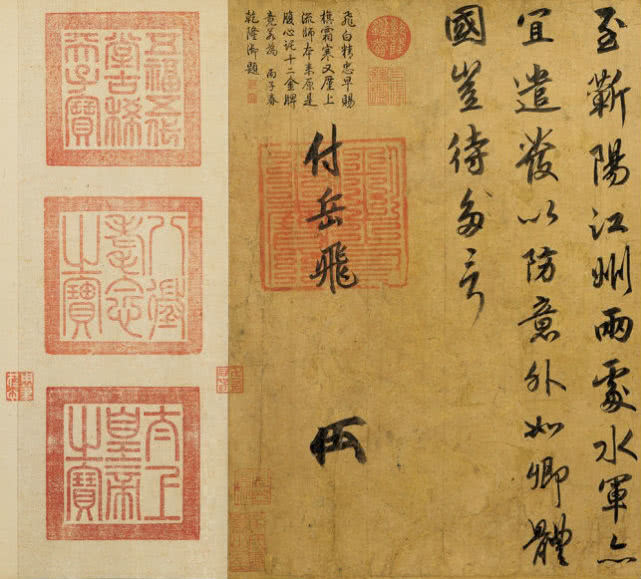 至蘄陽江州兩處水軍亦
宜遣發以防意外如卿體
國豈待多言
付岳飛
飛白精忠早賜
旗霜寒又廑上
流師本来原是
腹心託十二金牌
竟若為 丙子春
乾隆御題
五福五代
堂古稀
天子寶
八徵
耄念
之寶
太上
皇帝
之寶